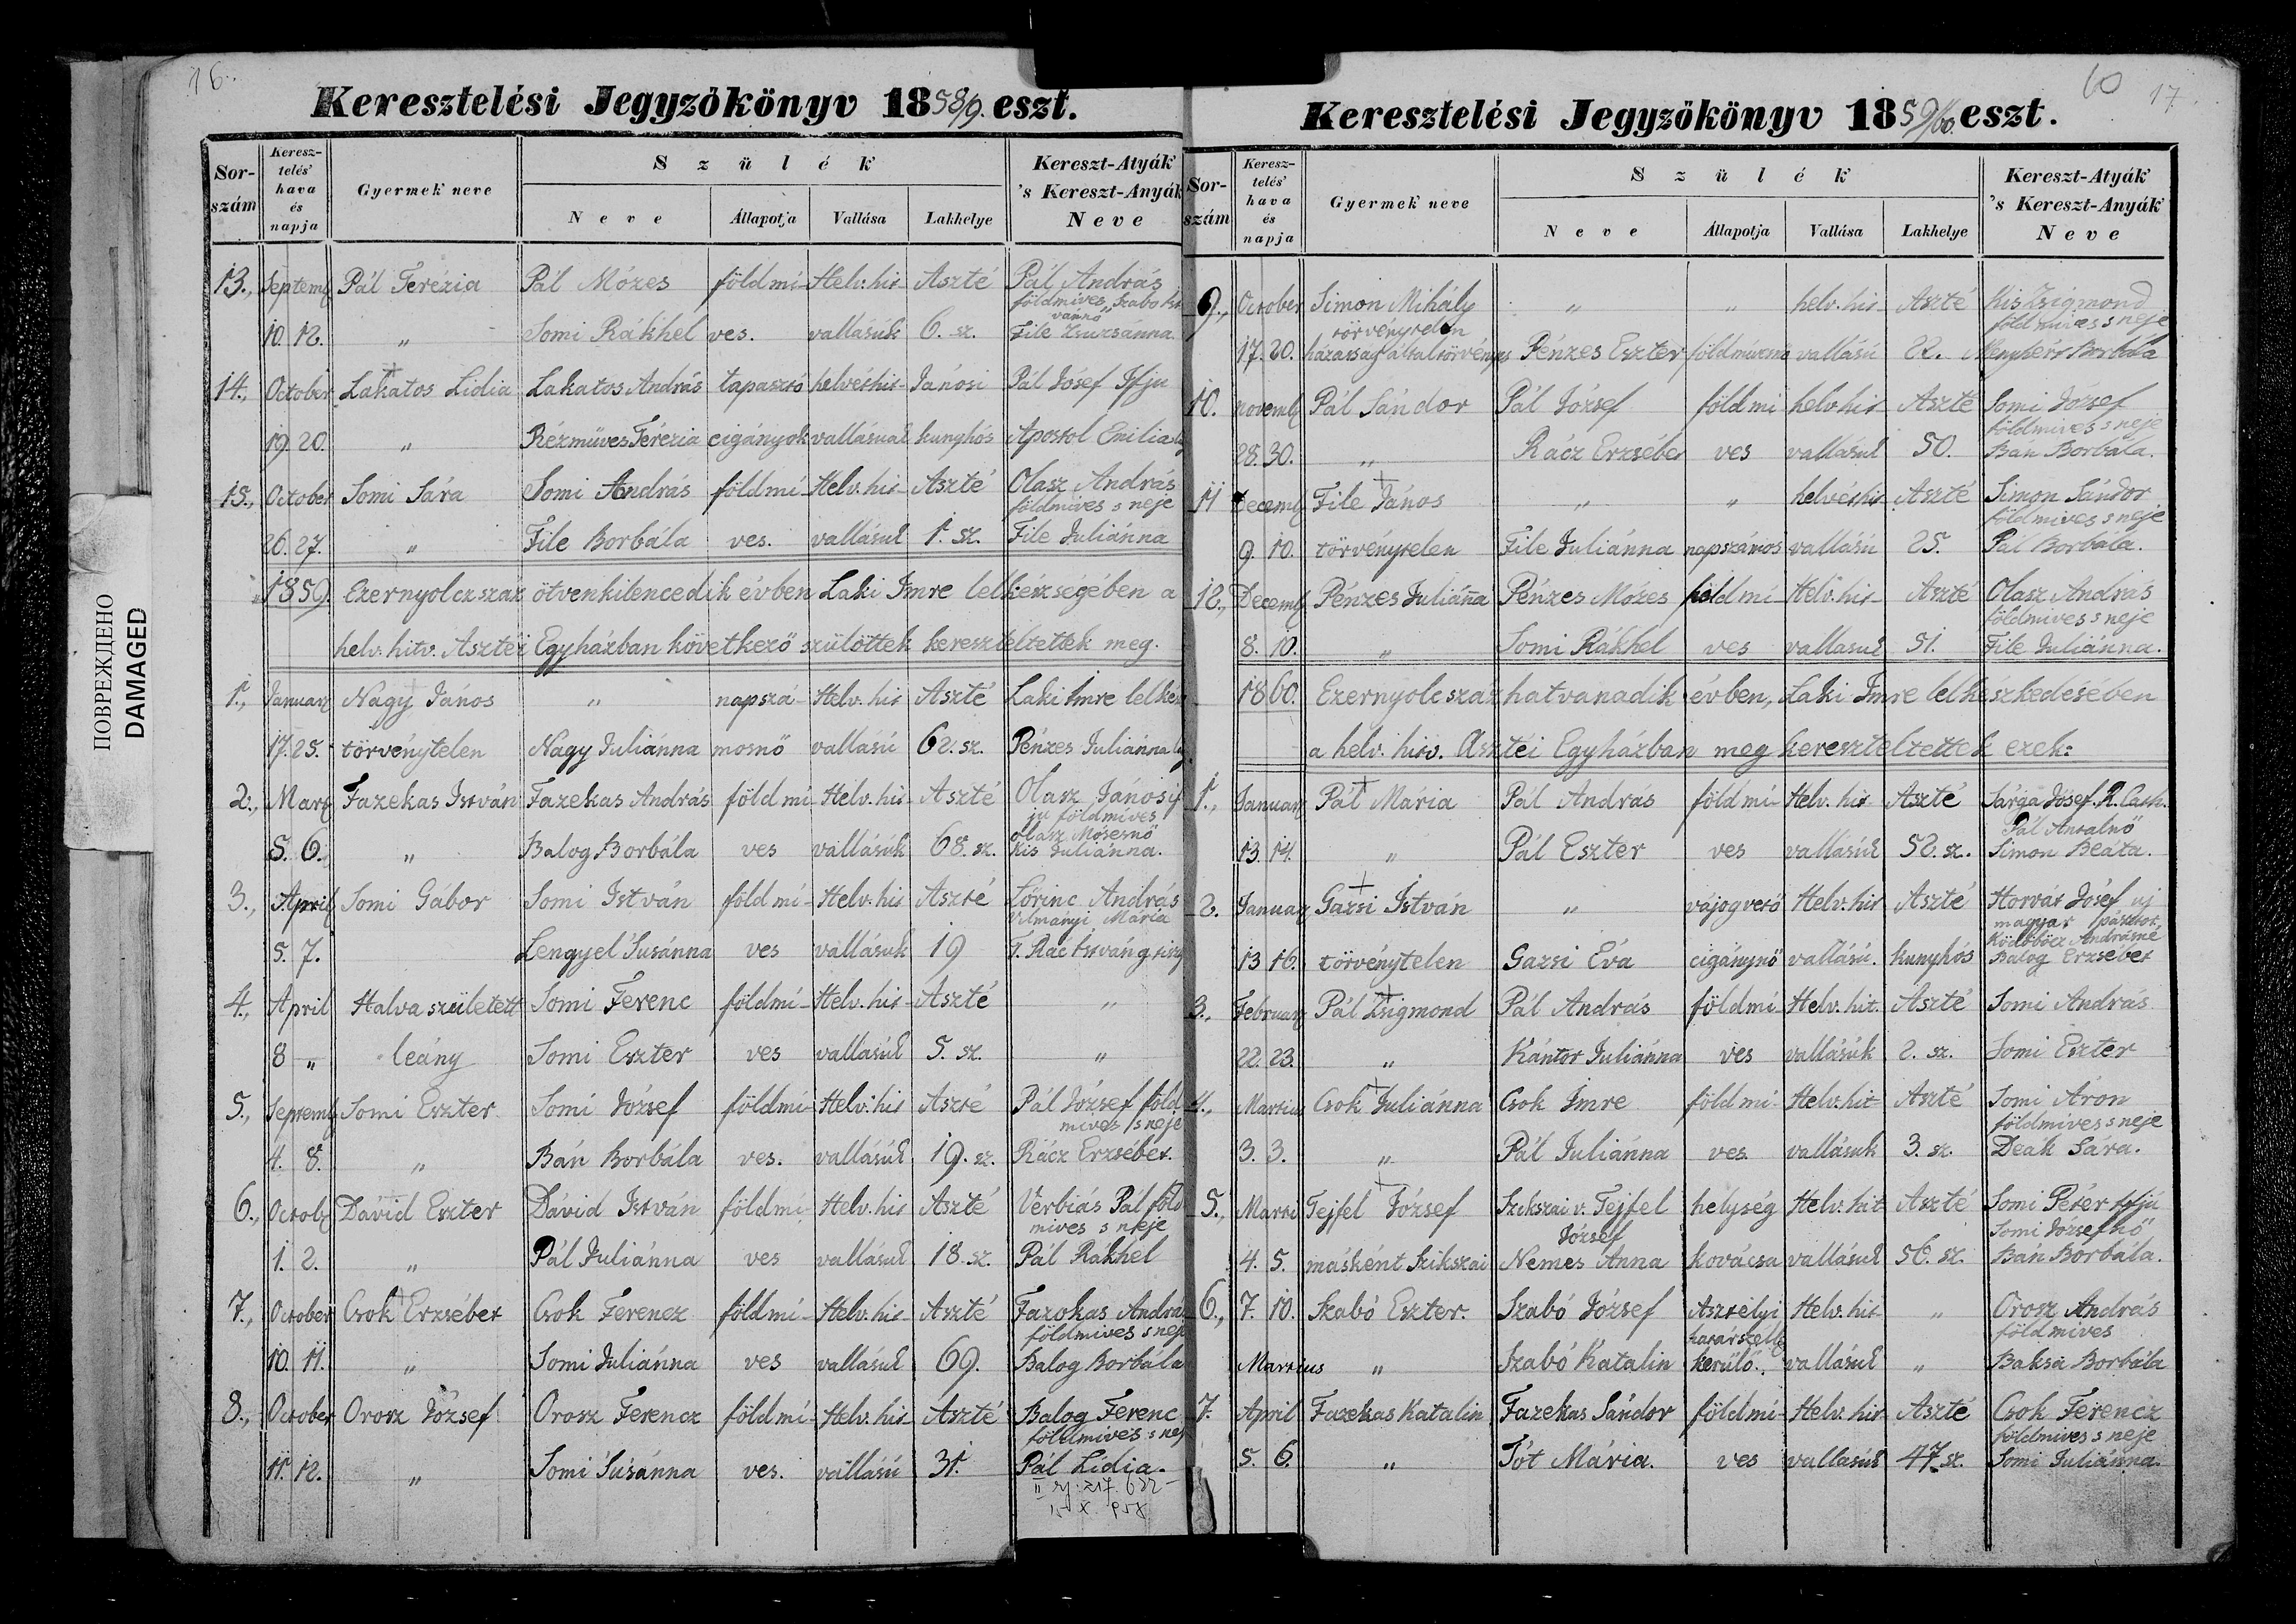 16.
Keresztelési Jegyzőkönyv 1858/9. eszt.
Sor-szám Keresz-telés' hava és napja Gyermek neve Szülék Neve Állapotja Vallása Lakhelye Kereszt-Atyák 's Kereszt-Anyák Neve
13., Septemb Pál Terézia Pál Mózes földmi- Helv: hit- Aszté Pál András
földmives
10. 12. " Somi Rákhel ves. vallásúk 6. sz. File Zsuzsánna
14., October Lakatos Lidia Lakatos András tapasztó helvét hit- Jánosi Pál Jósef Ifju
19. 20. " Rézmüves Terézia cigányok vallásuak kunyhós Apostol Emilia
15., October Somi Sára Somi András földmi- Helv. hit- Aszté Olasz András
földmives s neje
26. 27. " File Borbála ves. vallásuk 1. sz. File Juliánna
1859. Ezernyolczszáz ötvenkilencedik évben Laki Imre lelkészségében a
helv. hitv. Asztéi Egyházban következő szülöttek kereszteltettek meg.
1., Januar Nagy János " napszá- Helv. hit Aszté Laki Imre
17. 25. törvénytelen Nagy Juliánna mosnő vallású 62. sz. Pénzes Juliánna
2., Mart Fazekas István Fazekas András földmi Helv. hit- Aszté Olasz János if
ju földmives
Olasz Mósesnő
5. 6. " Balog Borbála ves vallásúk 68. sz. Kis Juliánna.
3., April Somi Gábor Somi István földmi- Helv. hit Aszté Lőrinc András
Ulmányi Mária
5. 7. Lengyel Susánna ves vallásuk 19
4., April Halva született Somi Ferenc földmi- Helv. hit- Aszté "
8 " leány Somi Eszter ves vallásúk 5. sz. "
5., Septemb Somi Eszter Somi József földmi- Helv. hit Aszté Pál József föld
mives s neje
4. 8. " Bán Borbála ves. vallásúk 19. sz. Rácz Erzsébet.
6., Octob Dávid Eszter Dávid István földmi- Helv. hit Aszté Verbiás Pál föld
mives s neje
1. 2. " Pál Juliánna ves vallásuk 18. sz. Pál Rákhel
7., October Csok Erzsébet Csok Ferencz földmi- Helv. hit- Aszté Fazokas András
földmives s neje
10. 11. " Somi Juliánna ves vallásuk 69. Balog Borbála
8., October Orosz József Orosz Ferencz földmi- Helv. hit Aszté Balog Ferenc
földmives s nej
11. 12. " Somi Susánna ves. vallású 31. Pál Lidia.
60
17.
Keresztelési Jegyzőkönyv 1859/60. eszt.
Sor-szám Keresz-telés' hava és napja Gyermek neve Szülék Neve Állapotja Vallása Lakhelye Kereszt-Atyák 's Kereszt-Anyák Neve
9., October Simon Mihály " " helv. hit- Aszté Kis Zsigmond
törvénytelen földmives s neje
17. 20. házasság által törvényes Pénzes Eszter vallású 22. Menyhért Borbála
10. novemb Pál Sándor Pál József földmi helv. hit- Aszté Somi József
földmives s neje
28. 30. " Rácz Erzsébet ves vallásuk 50. Bán Borbála.
11 Decemb File János " " helvét hit Aszté Simon Sándor
földmives s neje
9. 10. törvénytelen File Juliánna napszámos vallású 25. Pál Borbála.
12., Decemb Pénzes Juliánna Pénzes Mózes földmi- Helv. hit- Aszté Olasz András
földmives s neje
8. 10. " Somi Rákhel ves vallasuk 51. File Juliánna.
1860. Ezernyolcszáz hatvanadik évben, Laki Imre lelkészkedésében
a helv. hitv. Asztéi Egyházban meg kereszteltettek ezek:
1., Januar Pál Mária Pál András földmi- Helv. hit Aszté Sárga Jósef. R. Cath.
Pál Antalnő
13. 14. " Pál Eszter ves vallásúk 52. sz. Simon Beáta.
2. Januar Gazsi István " vájogvető Helv. hit Aszté Horvát Jósef uj
magyar pásztor,
Ködöböcz Andrásné
13 16. törvénytelen Gazsi Éva cigánynő vallású. kunyhós Balog Erzsébet
3., Februar Pál Zsigmond Pál András földmi- Helv. hit. Aszté Somi András
22. 23. " Kántor Juliánna ves vallásúk 2. sz. Somi Eszter
4., Martius Csok Juliánna Csok Imre földmi- Helv. hit- Aszté Somi Áron
földmives s neje
3. 3. " Pál Juliánna ves. vallásuk 3. sz. Deák Sára.
5., Marti Tejfel József Szikszai v. Tejfel helység Helv. hit Aszté Somi Péter Ifjú
József Somi Józsefnő
4. 5. másként Szikszai Nemes Anna kovácsa vallásuk 56. sz. Bán Borbála.
6., 7. 10. Szabó Eszter. Szabó József Asztélyi Helv. hit- " Orosz András
földmives
Martius " Szabó Katalin kerülő. vallásuk " Baksa Borbála
7. April Fazekas Katalin Fazekas Sándor földmi- Helv. hit Aszté Csok Ferencz
földmives s neje
5. 6. " Tót Mária. ves vallásúk 47. sz. Somi Juliánna.
ПОВРЕЖДЕНО
DAMAGED